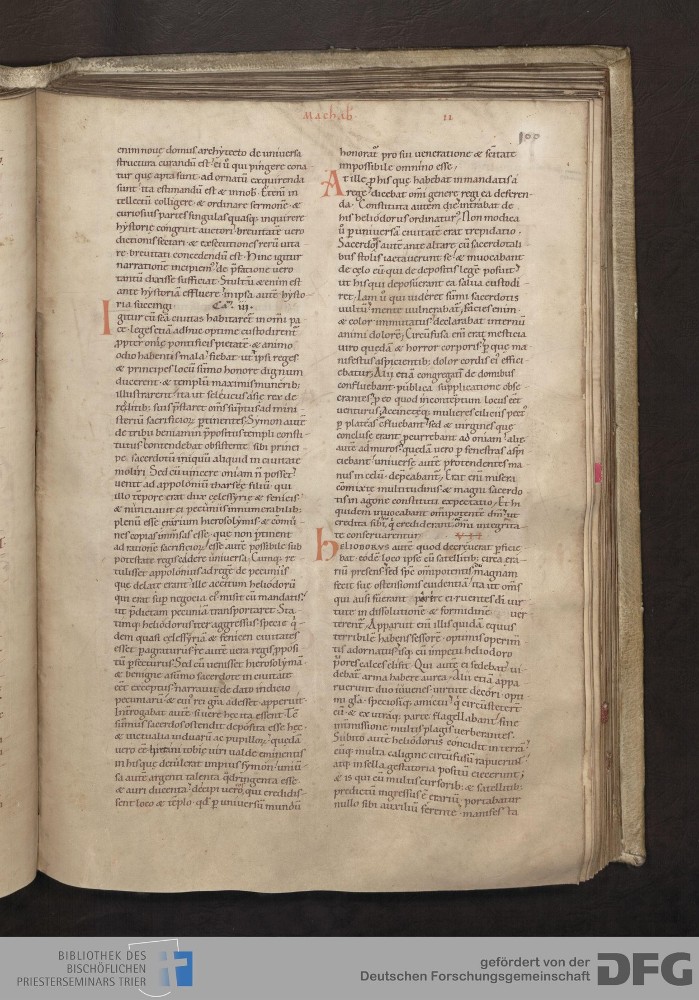 Machab
II
100
enim noue domus architecto de uniuersa
structura curandū est; ei ū qui pingere cona
tur que apta sunt ad ornatū exquirenda
sunt; ita estimandū est & in nob. Etenī in
tellectū colligere & ordinare sermonē &
curiosius partes singulas quasq; inquirere
hystorie congruit auctori; breuitatē uero
dictionis sectari & exsecutiones rerū uita
re breuitati concedendū est. Hinc igitur
narrationē incipiem; de p̄fatione uero
tantū dixisse sufficiat. Stultū & enim est
ante hystoriā effluere; in ipsa autē hysto
ria succingi. Cap. III.
Igitur cū sc̄a ciuitas habitaret in omni pa
ce leges etiā adhuc optime custodirent
ppter onię pontificis pietatē & animo
odio habentis mala; fiebat ut ipsi reges
& principes locū sūmo honore dignum
ducerent & templū maximis munerib;
illustrarent; ita ut seleucus asię rex de
redditib; suis p̄staret om̄s sūptus ad mini
steriū sacrificior; ptinentes. Symon autē
de tribu beniamin p̄positus templi consti
tutus contendebat obsistente sibi princi
pe sacerdotū iniquū aliquid in ciuitate
moliri. Sed cū uincere oniam n̄ posset
uenit ad appoloniū tharseę filiū qui
illo tēpore erat dux celessyrię & fenicis
& nunciauit ei pecuniis innumerabilib;
plenū esse erarium hierosolymis & cōmu
nes copias inmensas esse que non ptinent
ad rationē sacrificior; esse autē possibile sub
potestate regis cadere uniuersa. Cumq; re
tulisset appolonius ad regē de pecuniis
que delate erant; ille accitum heliodorū
qui erat sup negocia ei misit cū mandatis
ut p̄dictam pecuniā transportaret. Sta
timq; heliodorus iter aggressus specie q̄
dem quasi celessyriā & fenicen ciuitates
esset pagraturus; re autē uera regis pposi
tū pfecturus. Sed cū uenisset hierosolymā
& benigne a sūmo sacerdote in ciuitate
eēt exceptus; narrauit de dato indicio
pecuniarū & cui rei gr̄a adesset aperuit
Interrogabat autē si uere hec ita essent. Tc̄
sūmus sacerdos ostendit deposita esse hec
& uictualia uiduarū ac pupillor; quedā
uero eē hircani tobię uiri ualde eminentis
in his que detulerat impius symon; uniū
sa autē argenti talenta q̄dringenta esse
& auri ducenta; decipi uero, qui credidis
sent loco & tēplo qd̄ p uniuersū mundū
honorat̄ pro sui ueneratione & sc̄itate
impossibile omnino esse;
At ille p his que habebat in mandatis a
rege; dicebat om̄i genere regi ea deferen
da. Constituta autem die intrabat de
his heliodorus ordinatur; Non modica
ū p uniuersā ciuitatē erat trepidatio.
Sacerdos autē ante altare cū sacerdotali
bus stolis iactauerunt se & inuocabant
de cęlo eū qui de depositis legē posuit
ut his qui deposuerant ea salua custodi
ret. Iam ū qui uideret sūmi sacerdotis
uultū mente uulnerabat̄; facies enim
& color inmutatus declarabat internū
animi dolorē; Circūfusa eni erat mesticia
uiro quedā & horror corporis p que ma
nifestus aspicientib; dolor cordis ei effici
ebatur; Alii etiā congregati de domibus
confluebant publica supplicatione obse
crantes p eo quod in contēptum locus eēt
uenturus; accincteq; mulieres ciliciis pect;
p plateas effluebant; sed & uirgines que
concluse erant pcurrebant ad oniam; alię
autē ad muros; quedā uero p fenestras aspi
ciebant; uniuerse autē protendentes ma
nus in celū depcabant̄; Erat eni misera
cōmixte multitudinis & magni sacerdo
tis in agone constituti expectatio. Et hi
quidem inuocabant omipotentē dm̄ ut
credita sibi q̄ crediderant om̄i integrita
te conseruarentur. VII
Heliodorus autē quod decreuerat pficie
bat eodē loco ipse cū satellitib; circa era
riū presens; sed sp̄c omipotentis magnam
fecit sue ostensionis euidentiā; ita ut om̄s
qui ausi fuerant parere ei ruentes di uir
tute in dissolutionē & formidinē uer
terent̄; Apparuit eni illis quidā equus
terribilē habens sessorē optimis operim
tis adornatus; isq; cū impetu heliodoro
p̄ores calces elisit. Qui autē ei sedebat ui
debat̄ arma habere aurea. Alii etiā appa
ruerunt duo iuuenes uirtute decori opti
mi gl̄a speciosiq; amictu q̄ circūsteterē
eū & ex utraq; parte flagellabant sine
intmissione multis plagis uerberantes.
Subito autē heliodorus concidit in terrā
eūq; multa caligine circūfusū rapuerunt
atq; in sella gestatoria positū eiecerunt;
& is qui cū multis cursorib; & satellitib;
predictū ingressus ē erariū portabatur
nullo sibi auxiliū ferente manifesta
BIBLIOTHEK DES
BISCHÖFLICHEN
PRIESTERSEMINARS TRIER
gefördert von der
Deutschen Forschungsgemeinschaft
DFG